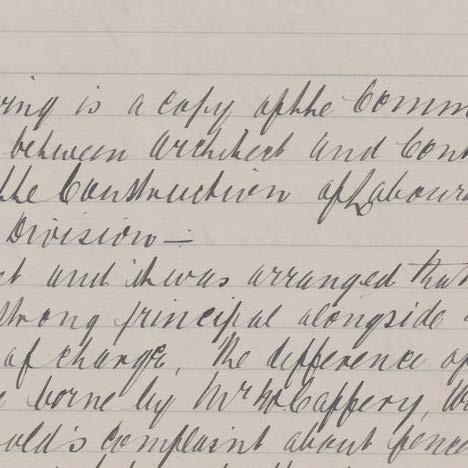 ing is a copy of the Comm
between architect and Cont
the Construction of Labour
Division —
st and it was arranged that
strong principal alongside
of charge, The difference of
borne by Mr McCaffery,
old's complaint about fence